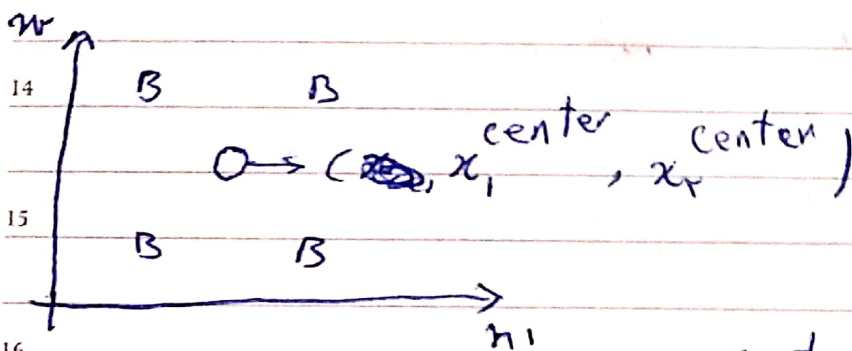 w
14 B B
(x₁ center , x₂ center)
15
B B
x1
16